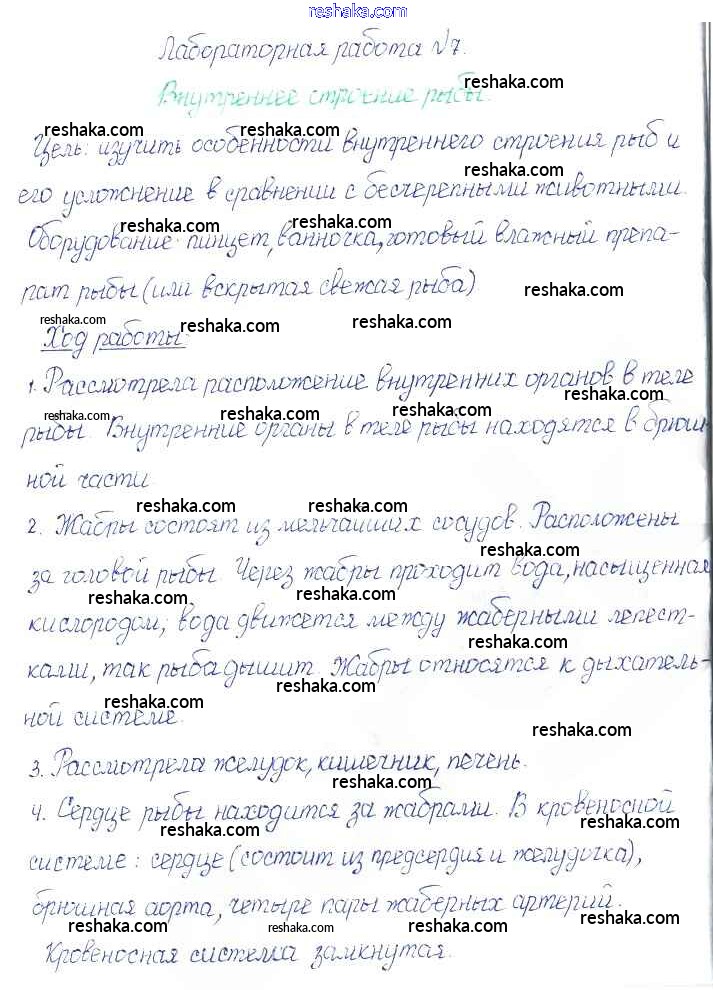 reshaka.com
Лабораторная работа №7.
reshaka.com
Внутреннее строение рыбы.
reshaka.com reshaka.com
Цель: изучить особенности внутреннего строения рыб и
его усложнение в сравнении с бесчерепными животными.
reshaka.com reshaka.com
Оборудование: пинцет, ванночка, готовый влажный препа-
рат рыбы (или вскрытая свежая рыба)
reshaka.com
reshaka.com reshaka.com reshaka.com
Ход работы:
1. Рассмотрела расположение внутренних органов в теле
reshaka.com reshaka.com reshaka.com reshaka.com
рыбы. Внутренние органы в теле рыбы находятся в брюш-
ной части
reshaka.com reshaka.com
2. Жабры состоят из мельчайших сосудов. Расположены
reshaka.com
за головой рыбы. Через жабры проходит вода, насыщенная
reshaka.com reshaka.com
кислородом; вода движется между жаберными лепест-
reshaka.com
ками, так рыба дышит. Жабры относятся к дыхатель-
reshaka.com reshaka.com
ной системе.
reshaka.com
3. Рассмотрела желудок, кишечник, печень.
reshaka.com
4. Сердце рыбы находится за жабрами. В кровеносной
reshaka.com reshaka.com
системе: сердце (состоит из предсердия и желудочка),
reshaka.com reshaka.com
брюшная аорта, четыре пары жаберных артерий.
reshaka.com reshaka.com reshaka.com reshaka.com
Кровеносная система замкнутая.